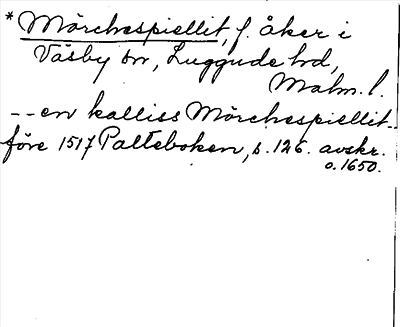 *Mörchespiellit, f. åker i
Väsby sn, Luggude hd,
Malm. l.
-- en kalliss Mörchespiellit --
före 1517 Palteboken, s. 126. avskr.
o. 1650.